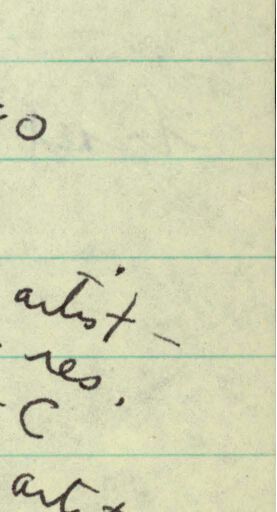 o
artist –
res.
- C
artist